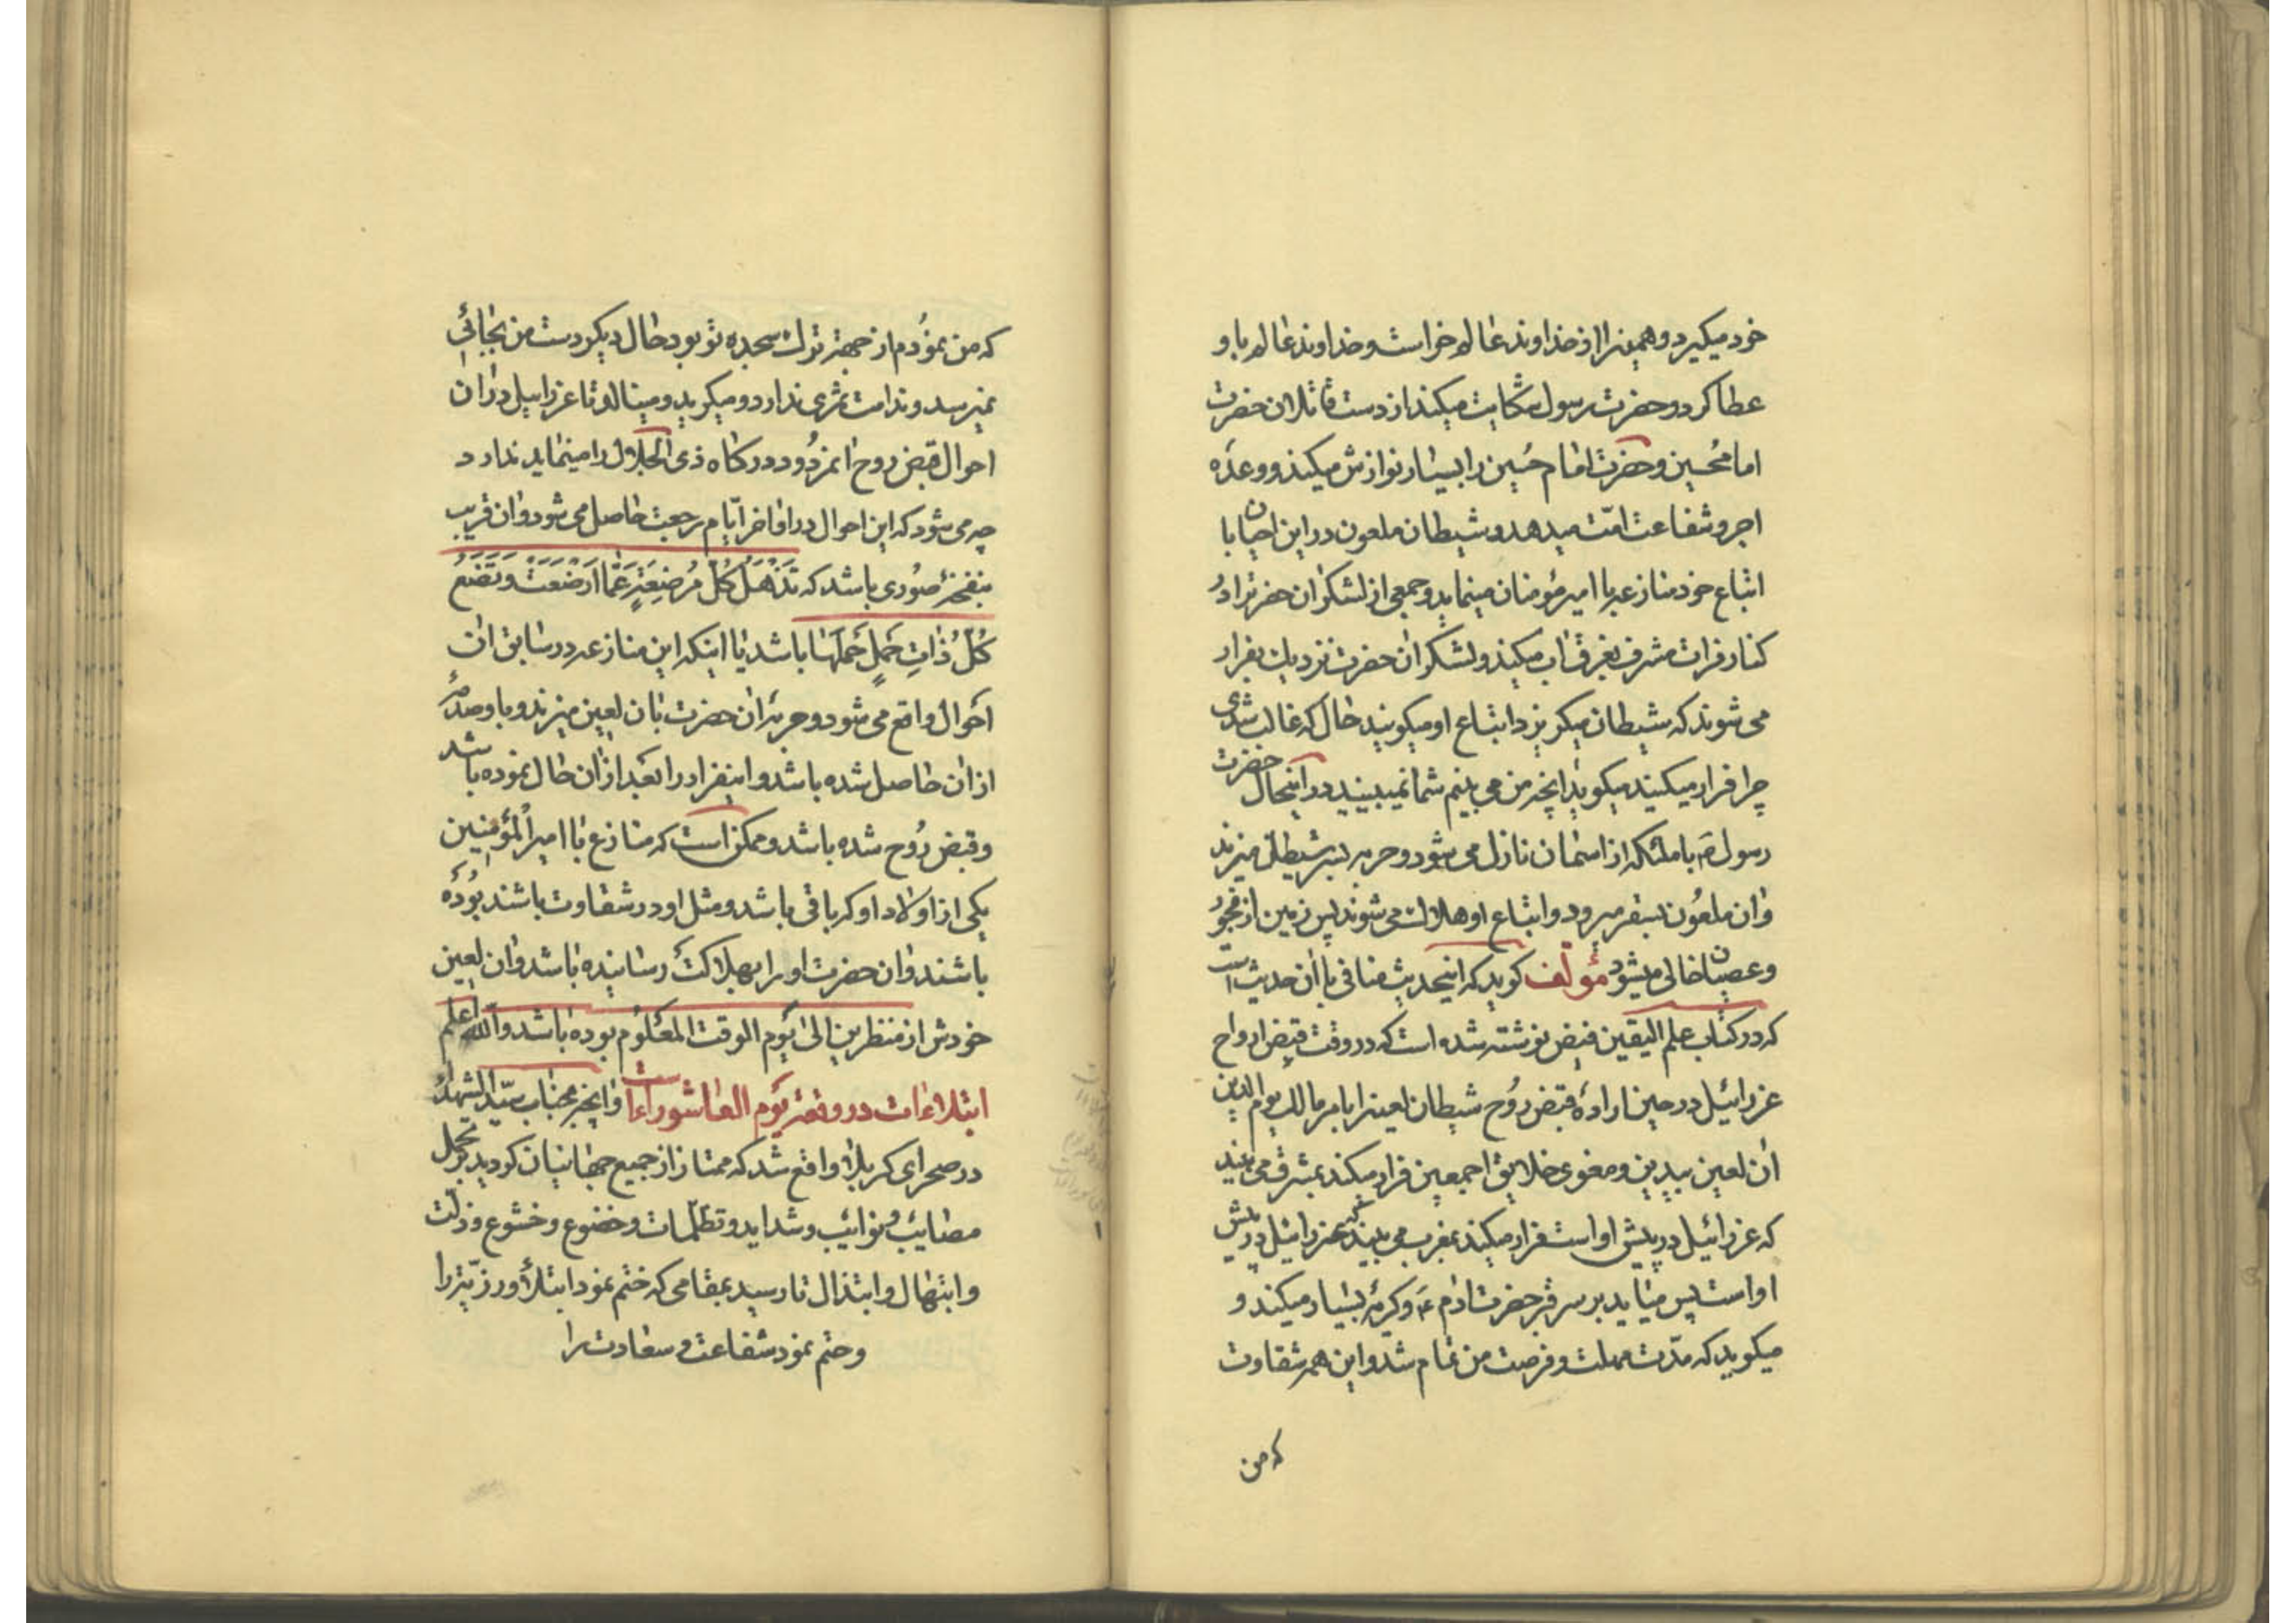 خود میکیرد و همین را از خداوند عالم خواست و خداوند عالم باو
عطا کرد و حضرت رسول شکایت میکند از دست قاتلان حضرت
امام حسین و حضرت امام حسین را بسیار نوازش میکند و وعده
اجر و شفاعت امّت میدهد و شیطان ملعون در این احیان با
اتباع خود منازعه با امیر مؤمنان مینماید و جمعی از لشکر ان حضرت را در
کنار فرات مشرف بغرقاب میکند و لشکر ان حضرت نزدیک بفرار
می شوند که شیطان میکریزد اتباع او میکویند حال که غالب شدی
چرا فرار میکنید میکوید انچه من می بینم شما نمیبینید در اینحال حضرت
رسول ص با ملئکه از اسمان نازل می شود و حربه بر شیطان میزند
و ان ملعون بسقر میرود و اتباع او هلاک می شوند پس زمین از فجور
و عصیان خالی میشود مؤلف کوید که اینحدیث منافی با ان حدیث است
که در کتاب علم الیقین فیض نوشته شده است که در وقت قبض ارواح
عزرائیل در حین اراده قبض روح شیطان لعین را بامر مالک یوم الدین
ان لعین بیدین و مغوی خلایق اجمعین فرار میکند بمشرق می بیند
که عزرائیل در پیش او است فرار میکند بمغرب می بیند که عزرائیل در پیش
او است پس میاید بر سر قبر حضرت ادم ع و کریهٔ بسیار میکند و
میکوید که مدّت مهلت و فرصت من تمام شد و این همه شقاوت
که من
که من نمودم از جهة ترک سجده تو بود حال دیکر دست من بجائی
نمیرسد و ندامت ثمری ندارد و میکرید و مینالد تا عزرائیل در ان
احوال قبض روح ان مردود درکاه ذی الجلال را مینماید ندارد
چه می شود که این احوال در اواخر ایّام رجعت حاصل می شود و ان قریب
بنفخهٔ صوری باشد که تَذْهَلُ کُلُّ مُرْضِعَةٍ عَمّا اَرْضَعَتْ وَ تَضَعُ
کُلُّ ذاتِ حَملٍ حَملَها باشد یا اینکه این منازعه در سابق ان
احوال واقع می شود و حربهٔ ان حضرت بان لعین میزند و باو صدمهٔ
از ان حاصل شده باشد و اینفرار را بعد از ان حال نموده باشد
و قبض روح شده باشد و ممکن است که منازع با امیر المؤمنین
یکی از اولاد او که باقی باشد و مثل او در شقاوت باشند بوده
باشند و ان حضرت او را بهلاکت رسانیده باشد و ان لعین
خودش از منتظرین الی یوم الوقت المعلوم بوده باشد و الله اعلم
ابتلاءات در وقعهٔ یوم العاشوراءاست و انچه بجناب سیّد الشهداء
در صحرای کربلا واقع شد که ممتاز از جمیع جهانیان کردید بر تحمل
مصائب و نوائب و شداید و تظلّمات و خضوع و خشوع و ذلّت
و ابتهال و ابتذال تا رسید بمقامی که ختم نمود ابتلا و رزیّه را
و ختم نمود شفاعت و سعادت را